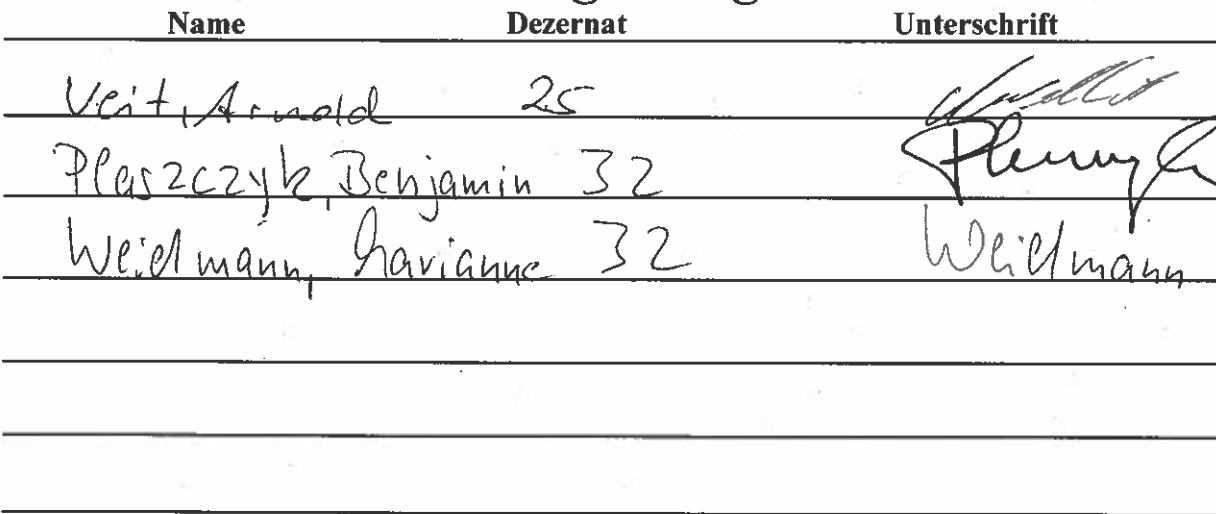 Name Dezernat Unterschrift
Veit, Arnold 25
Plaszczyk, Benjamin 32
Weidmann, Marianne 32 Weidmann